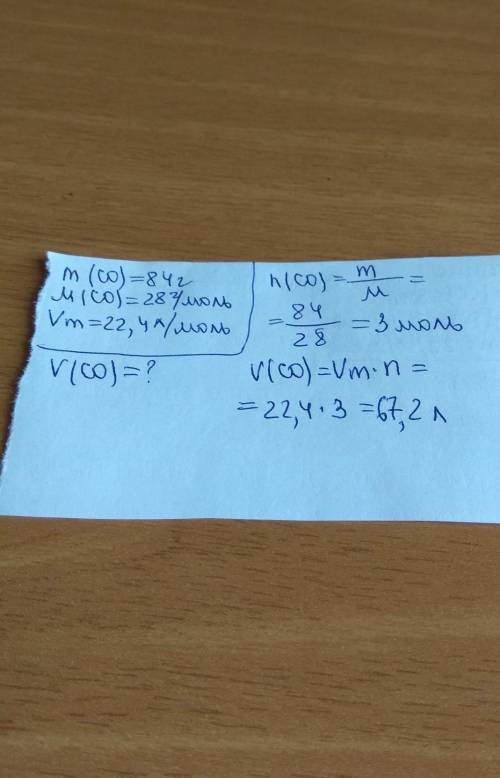 m(CO)=84г
M(CO)=28г/моль
Vm=22,4л/моль
V(CO)=?
n(CO)=m/M=
=84/28=3 моль
V(CO)=Vm·n=
=22,4·3=67,2 л